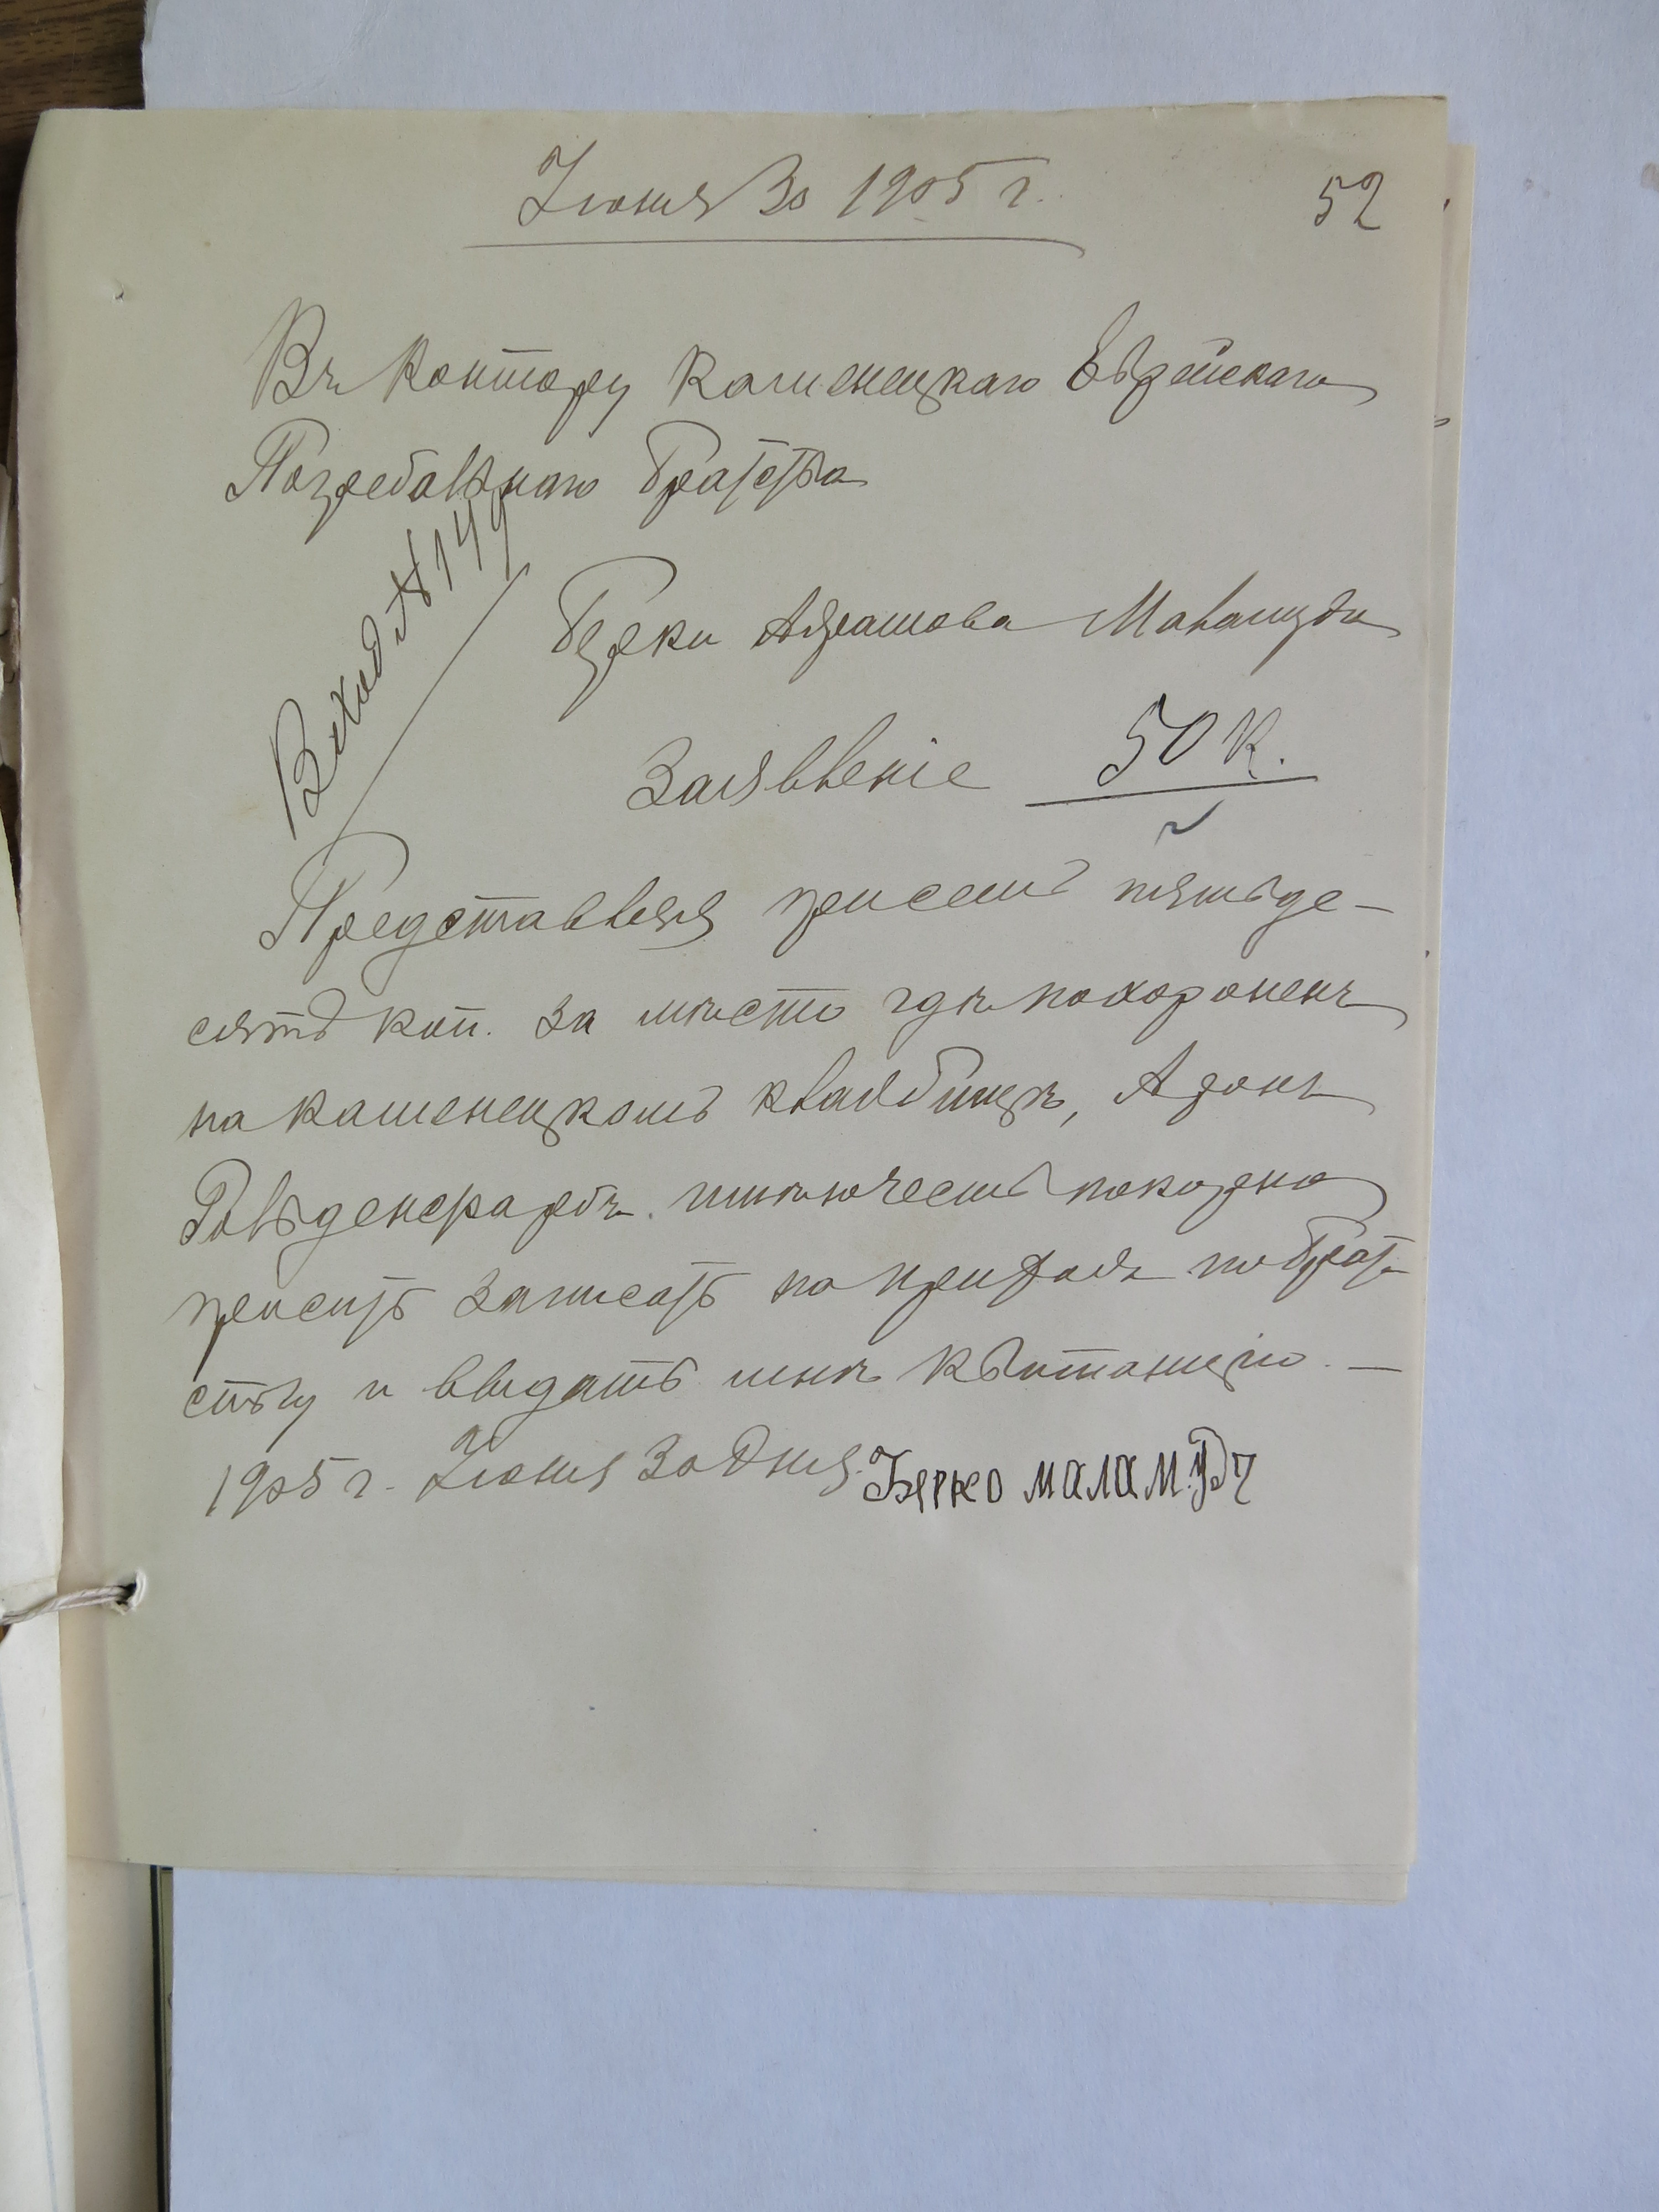 Июня 30 1905 г.
52
Въ Контору Каменецкаго Еврейскаго
Погребальнаго Братства
Входд № 149
Берки Абрамова Маламуда
Заявленіе 50 К.
Представляя присемъ пятьде-
сятъ коп. за мѣсто гдѣ похороненъ
на каменецкомъ кладбищѣ, Аронъ
покорно
просить записать на приходъ по Брат-
ству и выдать мнѣ Квитанцію. —
1905 г. Июня 30 Дня. Берко маламудъ